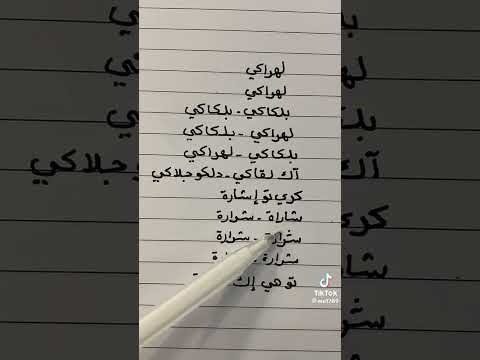 لهراكي
لهراكي
بلكاكي - بلكاكي
لهراكي - بلكاكي
بلكاكي - لهراكي
آك لقاكي - دلكوجلاكي
كري تو إشارة
شارة - شرارة
شرارة - شرارة
شرارة
تو هي إك
TikTok